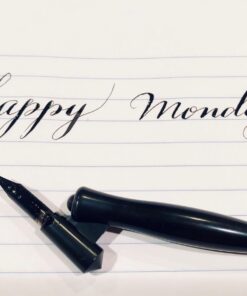 happy Monday